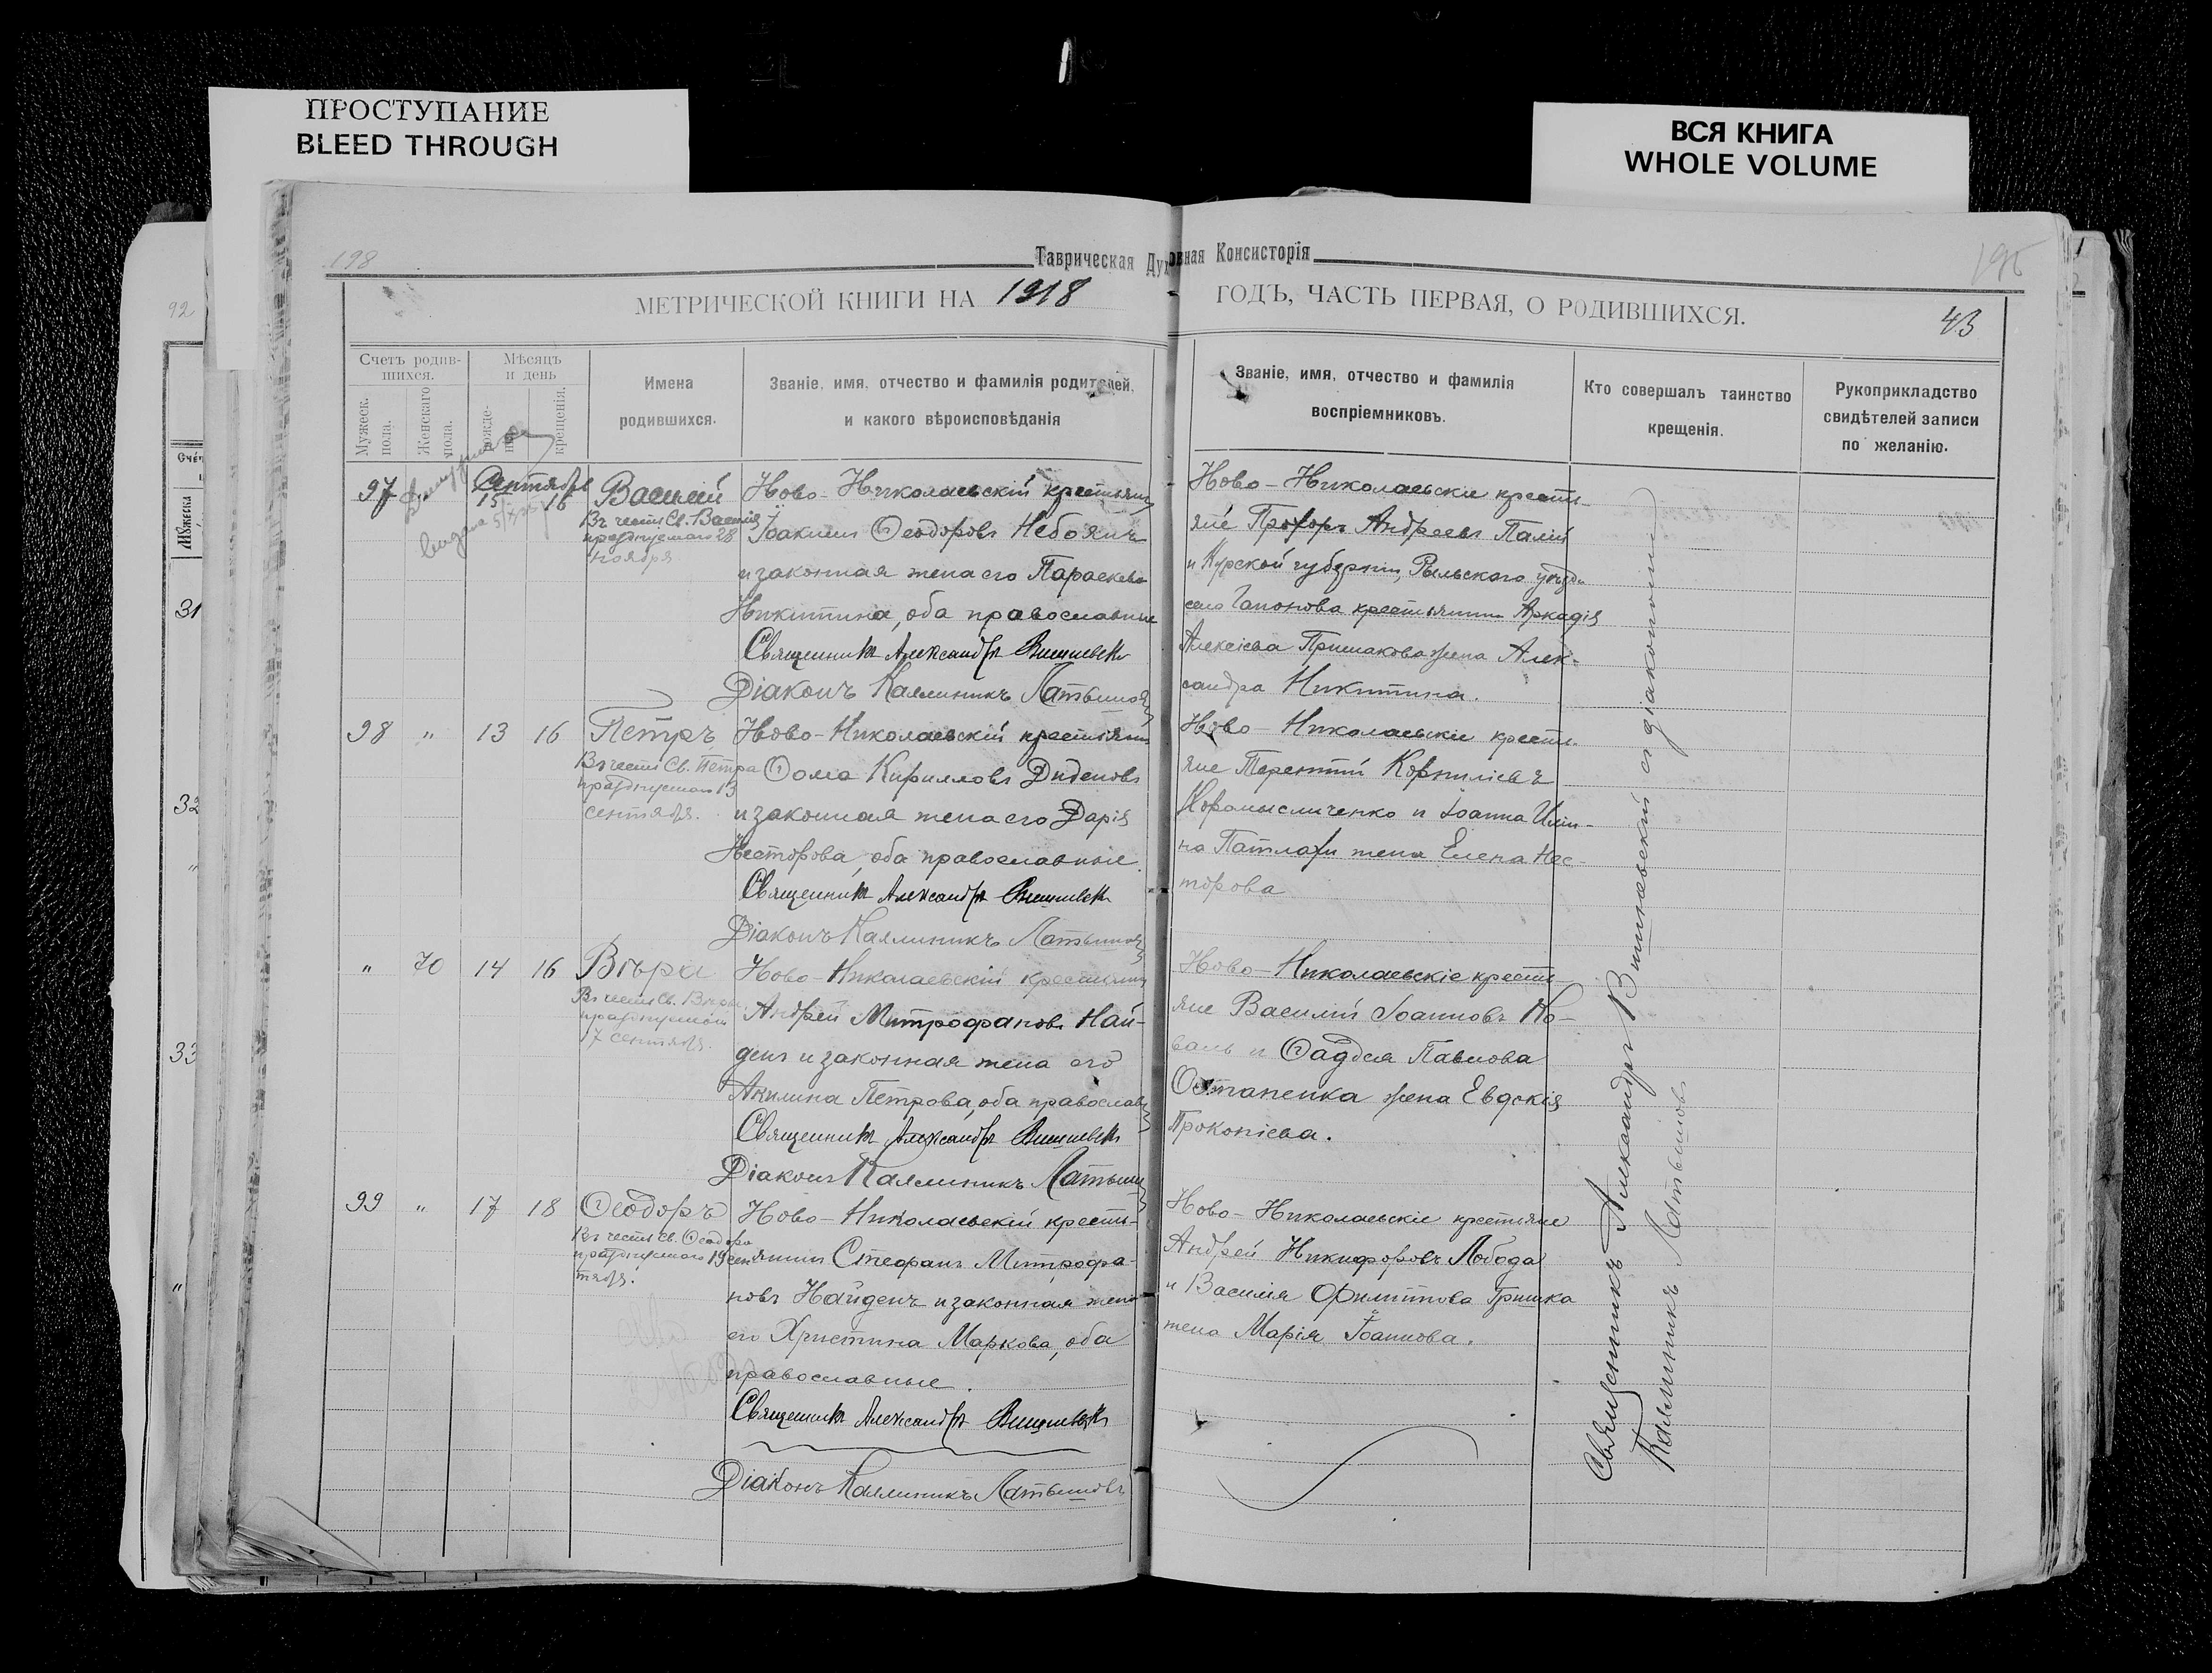 ПРОСТУПАНИЕ
BLEED THROUGH
ВСЯ КНИГА
WHOLE VOLUME
198
Таврическая Духовная Консисторія
МЕТРИЧЕСКОЙ КНИГИ НА 1918 ГОДЪ, ЧАСТЬ ПЕРВАЯ, О РОДИВШИХСЯ.
43
Счетъ родив-
шихся.
Мужеск. пола.
Женскаго пола.
Мѣсяцъ
и день
рожде-
нія.
крещенія.
Имена
родившихся.
Званіе, имя, отчество и фамилія родителей,
и какого вѣроисповѣданія
Званіе, имя, отчество и фамилія
воспріемниковъ.
Кто совершалъ таинство
крещенія.
Рукоприкладство
свидѣтелей записи
по желанію.
97
Сентябрь
15 16
Василій
Въ честь Св. Василія
празднуемаго 28
ноября
Ново-Николаевскій крестьянинъ
Іоакимъ Ѳеодоровъ Небоженъ
и законная жена его Параскева
Никитина, оба православные
Священникъ Александръ Вишневскій
Діаконъ Каллиникъ Латышовъ
Ново-Николаевскіе кресть-
яне Прохоръ Андреевъ Палій
и Курской губерніи, Рыльскаго уѣзда
села Гапонова крестьянина Аркадія
Алексіева Пришакова жена Алек-
сандра Никитина.
98 " 13 16
Петръ
Въ честь Св. Петра
празднуемаго 13
сентября.
Ново-Николаевскій крестьянинъ
Ѳома Кирилловъ Диденовъ
и законная жена его Дарія
Несторова, оба православные.
Священникъ Александръ Вишневскій
Діаконъ Каллиникъ Латышовъ
Ново-Николаевскіе кресть-
яне Терентій Корниліевъ
Коромысличенко и Іоанна Иліи-
на Патлахи жена Елена Нес-
торова
" 70 14 16
Вѣра
Въ честь Св. Вѣры
празднуемой
17 сентября.
Ново-Николаевскій крестьянинъ
Андрей Митрофановъ Най-
денъ и законная жена его
Акилина Петрова, оба православные
Священникъ Александръ Вишневскій
Діаконъ Каллиникъ Латышовъ
Ново-Николаевскіе кресть-
яне Василій Іоанновъ Ко-
валь и Ѳаддея Павлова
Остапенка жена Евдокія
Прокопіева.
99 " 17 18
Ѳеодоръ
Въ честь Св. Ѳеодора
празднуемаго 19 сен
тября.
Ново-Николаевскій кресть-
янинъ Стефанъ Митрофа-
новъ Найденъ и законная жена
его Христина Маркова, оба
православные.
Священникъ Александръ Вишневскій
Діаконъ Каллиникъ Латышовъ
Ново-Николаевскіе крестьяне
Андрей Никифоровъ Лобода
и Василія Филиппова Гришка
жена Марія Іоаннова.
Священникъ Александръ Вишневскій съ діакономъ
Каллиникъ Латышовъ
92
31
32
33